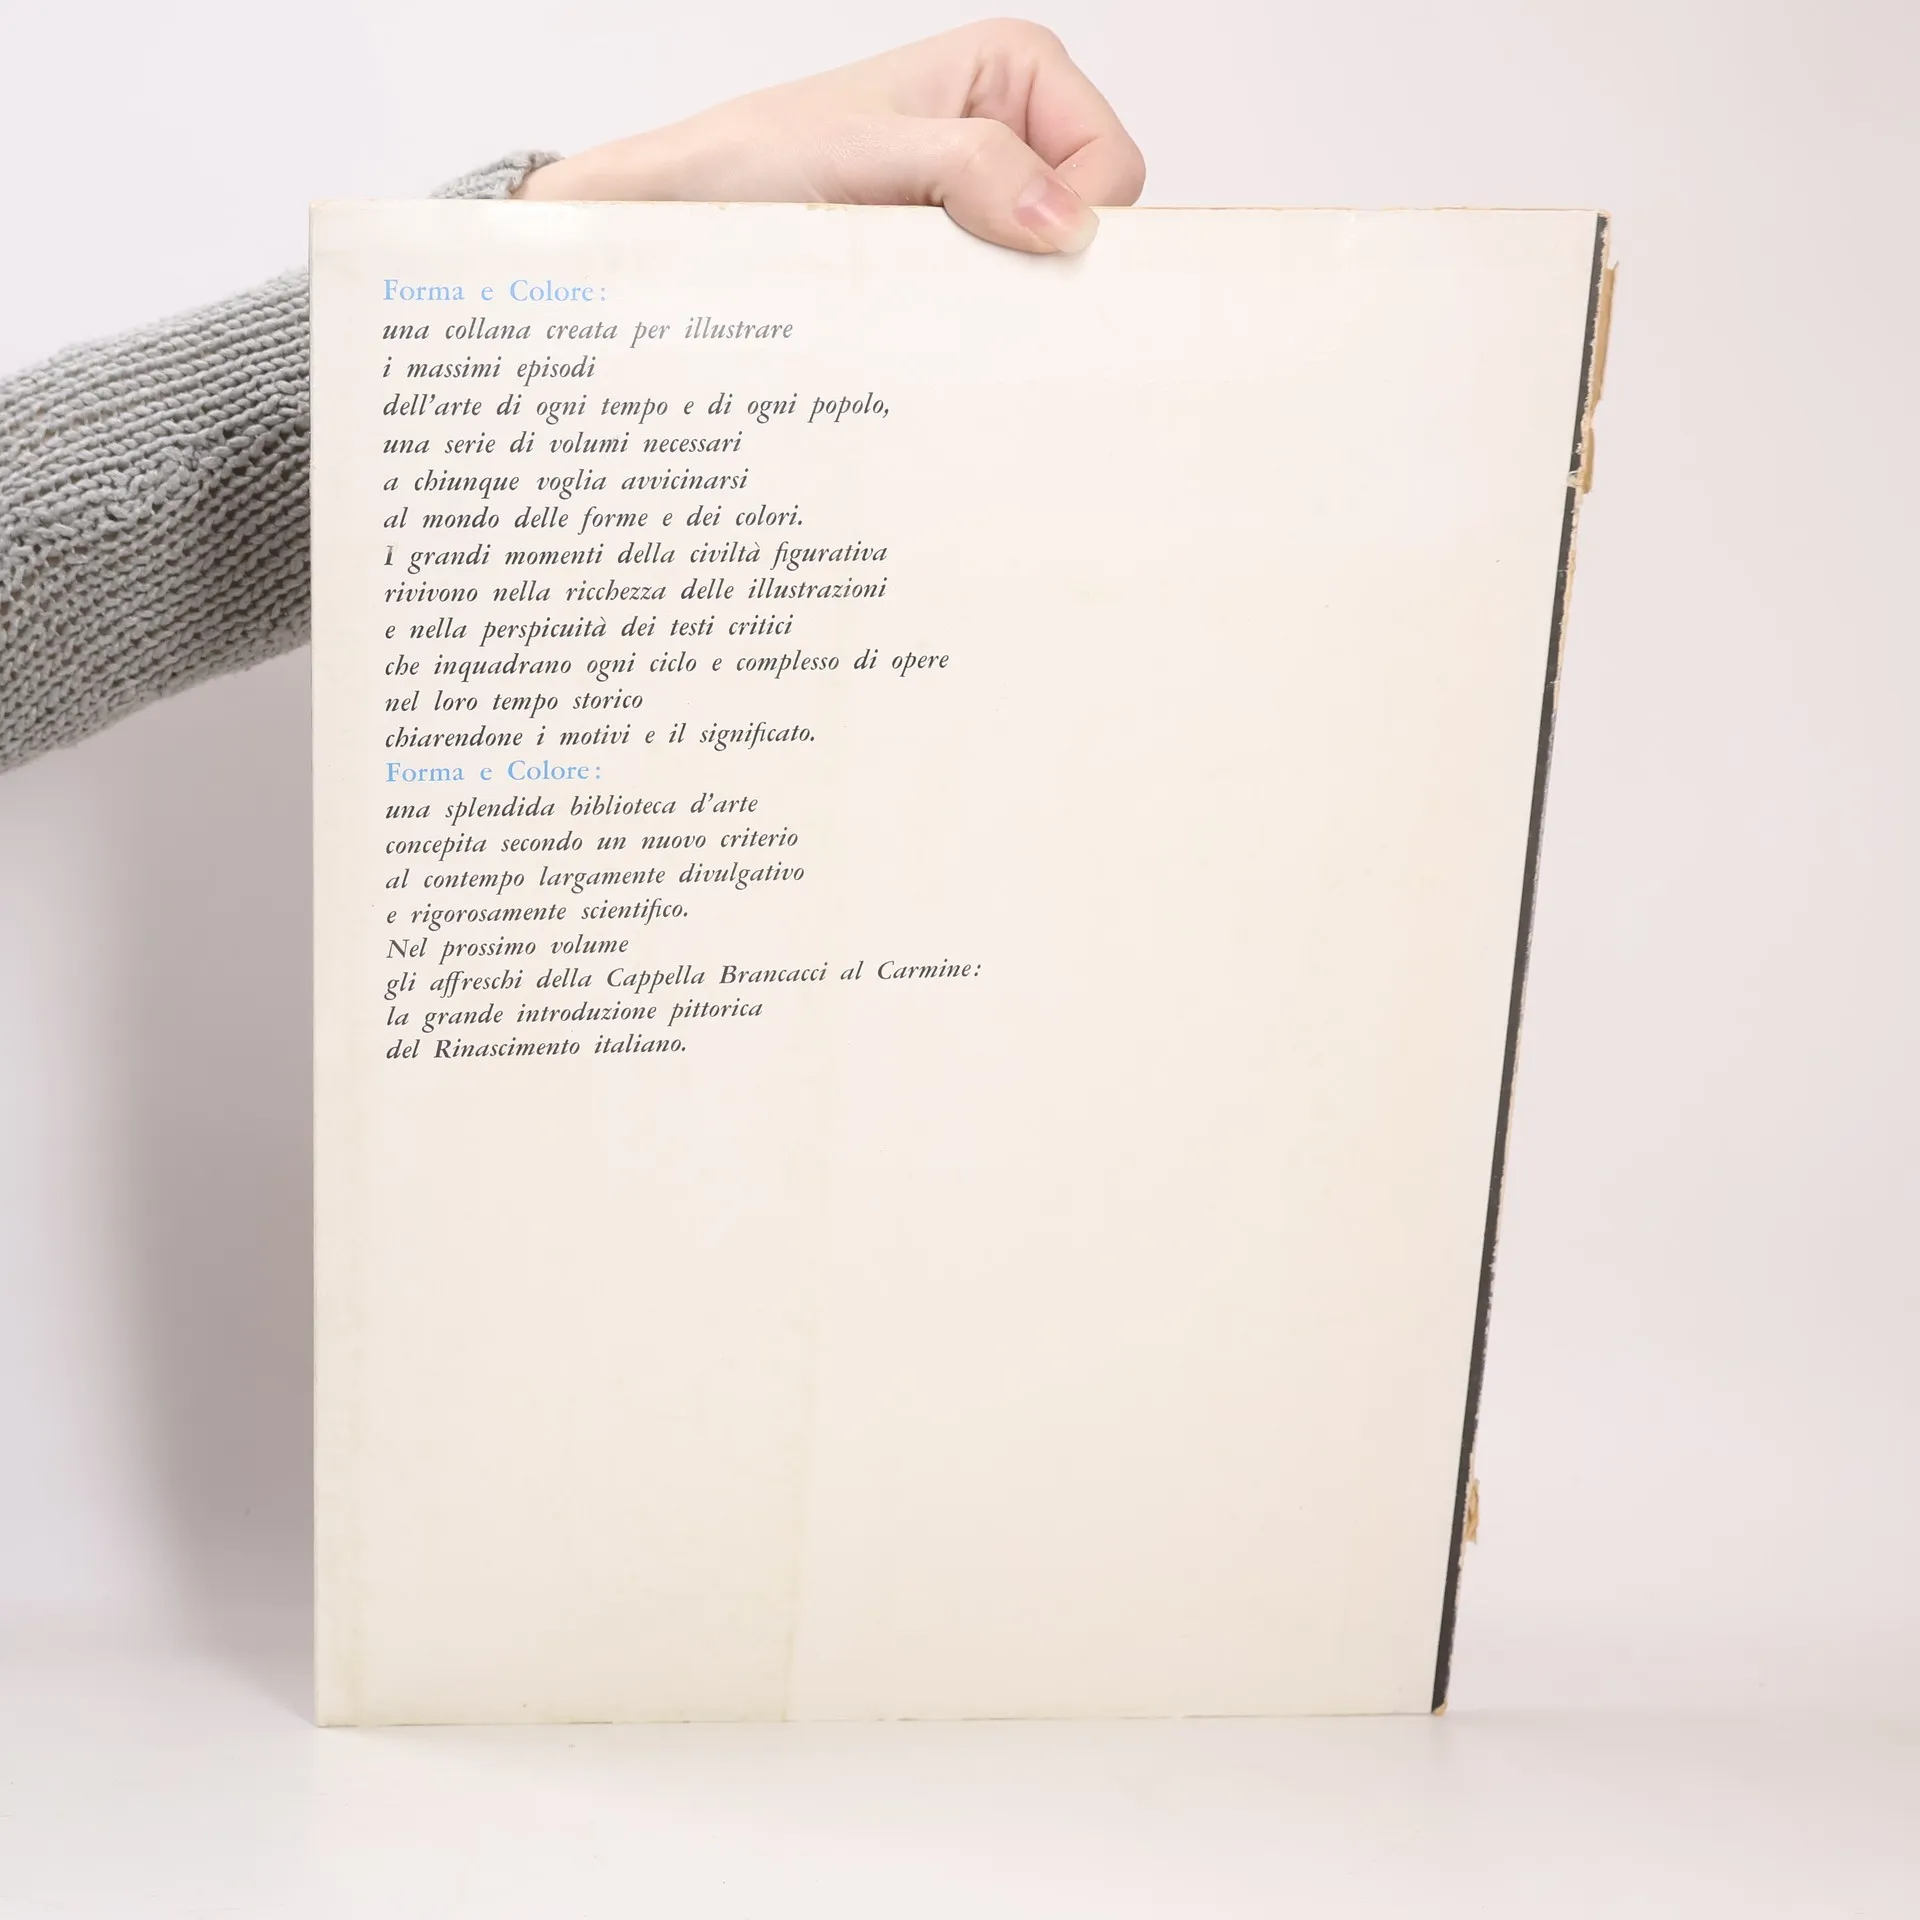 Forma e Colore:
una collana creata per illustrare
i massimi episodi
dell'arte di ogni tempo e di ogni popolo,
una serie di volumi necessari
a chiunque voglia avvicinarsi
al mondo delle forme e dei colori.
I grandi momenti della civiltà figurativa
rivivono nella ricchezza delle illustrazioni
e nella perspicuità dei testi critici
che inquadrano ogni ciclo e complesso di opere
nel loro tempo storico
chiarendone i motivi e il significato.
Forma e Colore:
una splendida biblioteca d'arte
concepita secondo un nuovo criterio
al contempo largamente divulgativo
e rigorosamente scientifico.
Nel prossimo volume
gli affreschi della Cappella Brancacci al Carmine:
la grande introduzione pittorica
del Rinascimento italiano.